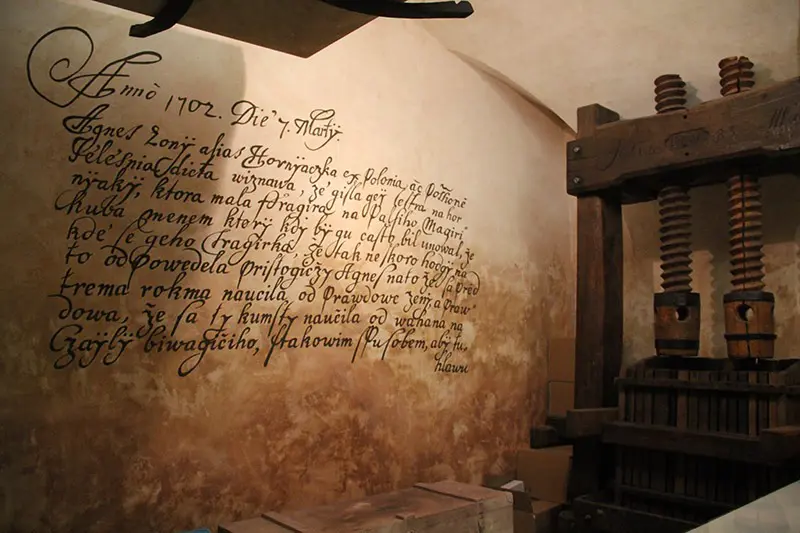 Anno 1702. Die 7. Martÿ.
Agnes Zonÿ alias Hornÿaczka ex Polonia ac Possone
Pelesnia dicta wiznawa, že gisla geÿ sestra na hor
nÿakÿ, ktora mala fragira na Palsiho Magiri
kuba menem kterÿ kdÿ bÿ gu casto bil unowal, že
kde se geho fragirka, že tak neskoro hodÿ na
to odpowedela pristogiczÿ Agnes nato že sa pred
trema rokma naucila, od Prawdowe žem, a Praw
dowa, že sa tÿ kumstÿ naučila od wahana na
Czaÿlÿ biwagičiho, stakowim spusobem, abÿ tu,
hlawu